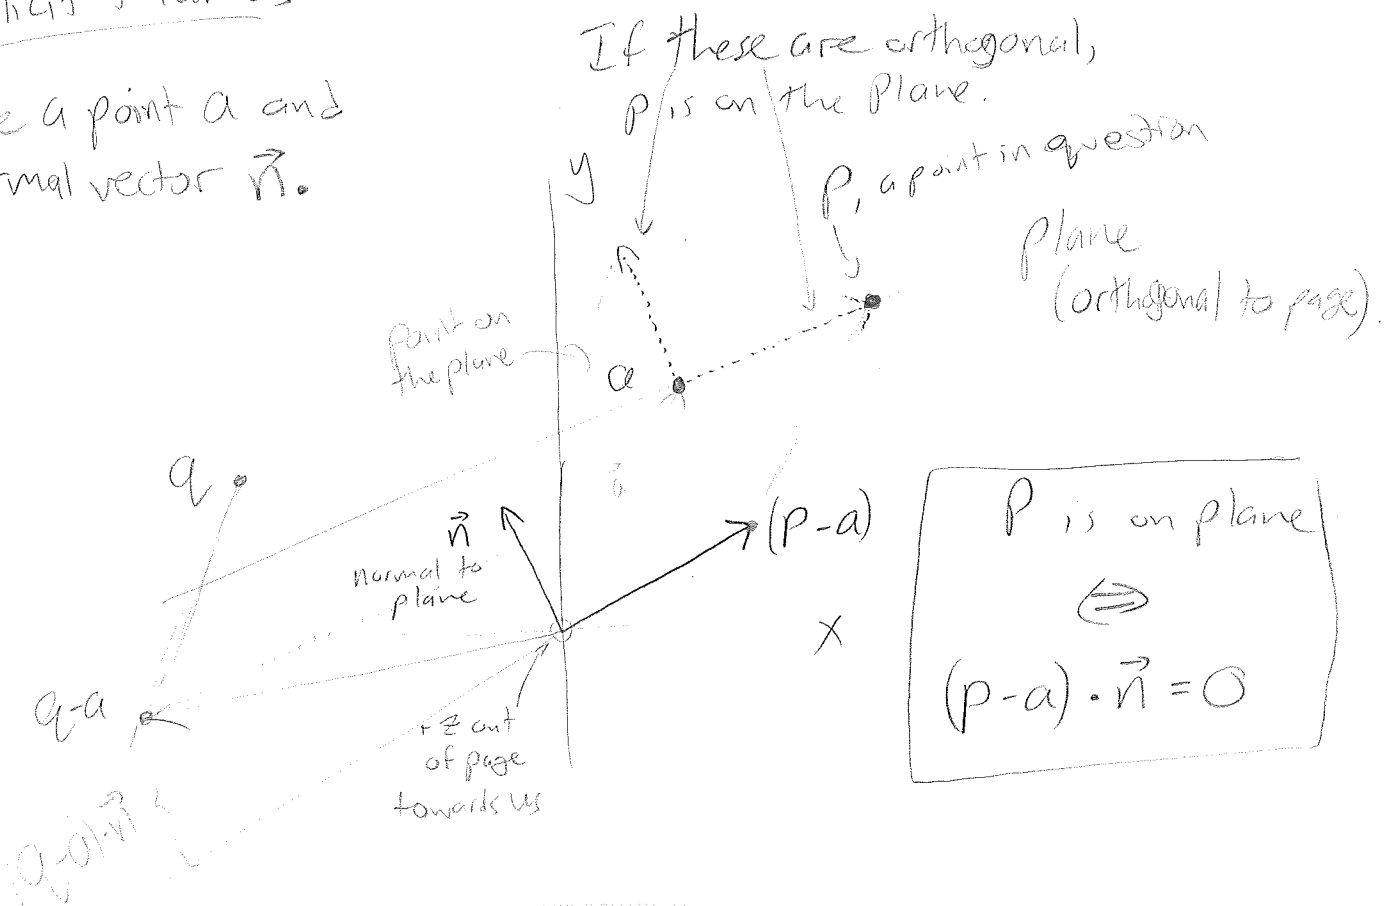 a point a and
vector n⃗.
If these are orthogonal,
p is on the plane.
y
P, a point in question
plane
(orthogonal to page).
point on
the plane
a
q
n⃗
normal to
plane
(p-a)
x
q-a
+z out
of page
towards us
P is on plane
⇔
(p-a)·n⃗=0